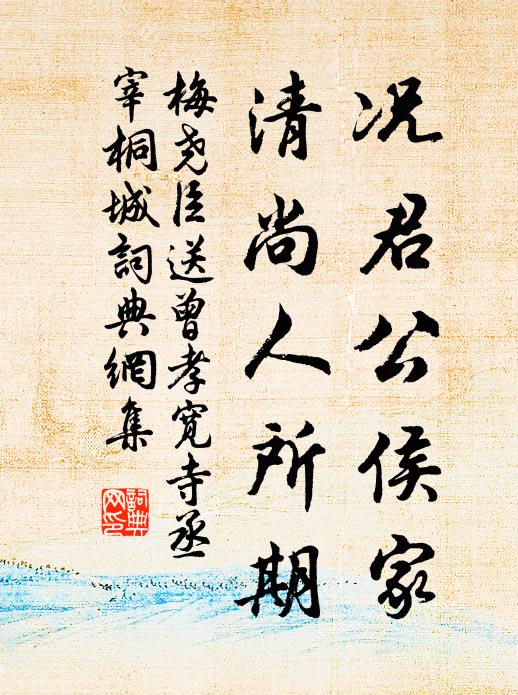 况君公侯家
清尚人所期
梅尧臣送曾孝寛寺丞
宰桐城詞典網集
詞典网印